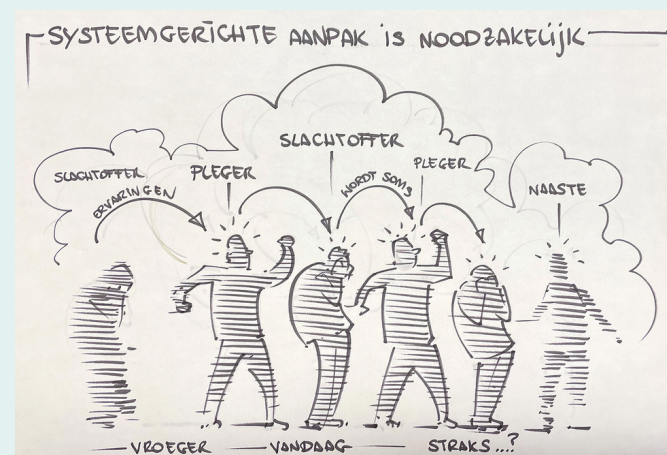 SYSTEEMGERICHTE AANPAK IS NOODZAKELIJK
SLACHTOFFER
ERVARINGEN
PLEGER
SLACHTOFFER
WORDT SOMS
PLEGER
NAASTE
VROEGER
VANDAAG
STRAKS....?